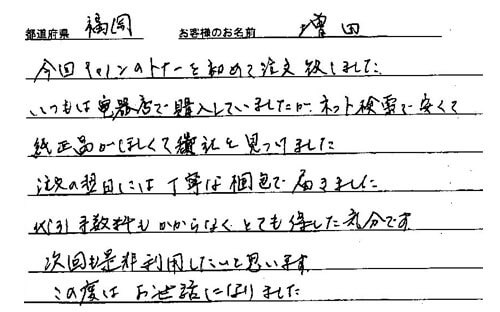 都道府県 福岡 お客様のお名前 増田
今回キャノンのトナーを初めて注文致しました
いつもは電器店で購入していましたが、ネット検索で安くて
純正品がほしくて貴社を見つけました
注文の翌日には丁寧な梱包で届きました
代引手数料もかからなくとても得した気分です
次回も是非利用したいと思います
この度はお世話になりました